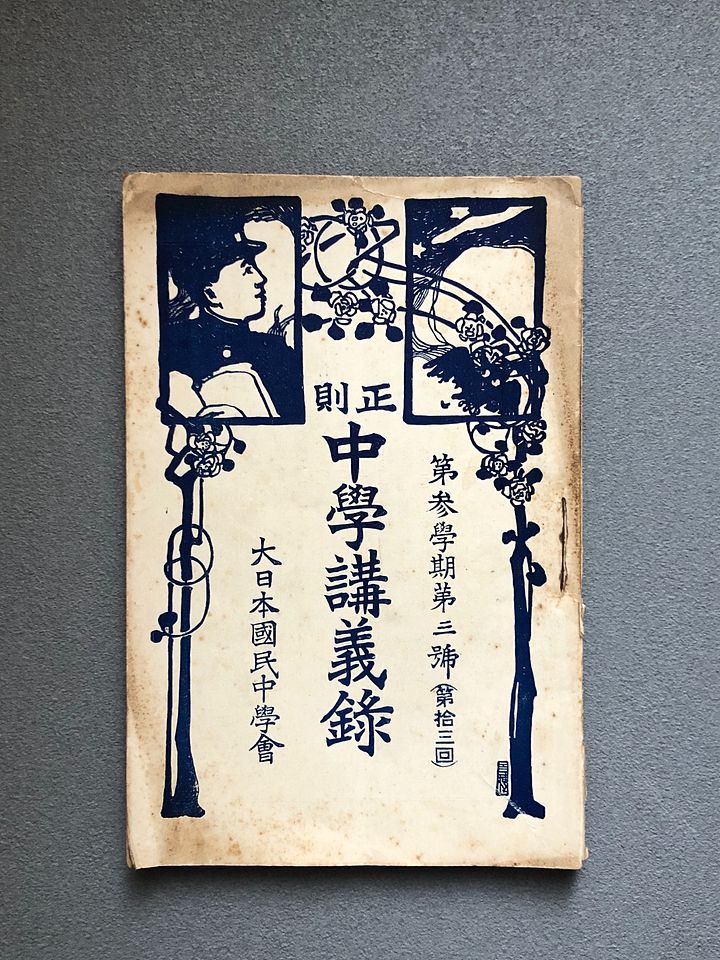 第参學期第三號(第拾三回)
正則
中學講義錄
大日本國民中學會